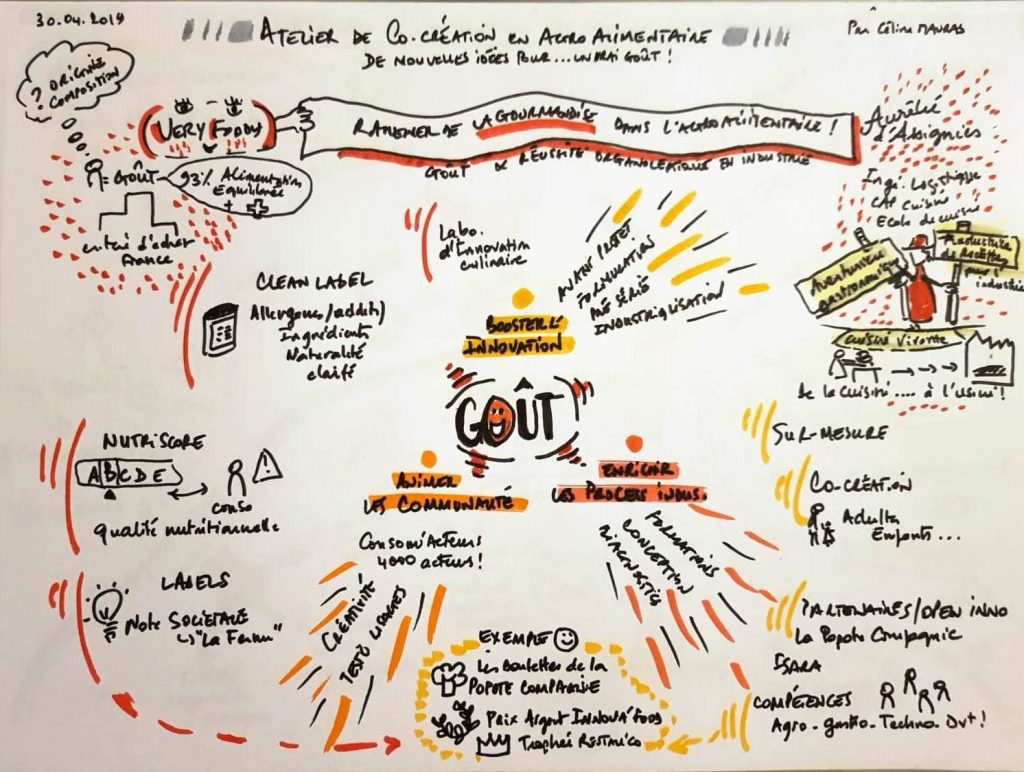 30.04.2019
ATELIER DE CO-CRÉATION EN AGROALIMENTAIRE
Par Céline MAURAS
DE NOUVELLES IDÉES POUR... UN VRAI GOÛT !
? ORIGINE
COMPOSITION
VERY FOODY
RAMENER DE LA GOURMANDISE DANS L'AGROALIMENTAIRE !
GOÛT DE RÉUSSITE ORGANOLEPTIQUE EN INDUSTRIE
= GOÛT
93% Alimentation
Equilibrée
+
d'achat
France
Aurélie
d'Assignies
Ingé. Logistique
CAP Cuisine
Ecole de cuisine
Aventurière
gastronomique
de Recettes
pour l'
industrie
Cuisine Vivante
De la cuisine .... à l'usine !
CLEAN LABEL
Allergènes/additifs
Ingrédients
Naturalité
clarté
Labo.
d'Innovation
culinaire
AVANT PROJET
FORMULATION
MÉ SÉRIE
INDUSTRIALISATION
BOOSTER L'
INNOVATION
GOÛT
ANIMER
LES COMMUNAUTÉ
ENRICHIR
LES PROCESS INDUS.
Consom'Acteurs
4000 acteurs !
CRÉATIVITÉ
TESTS USAGES
FORMATIONS
CONCEPTION
DIAGNOSTICS
NUTRISCORE
A B C D E
conso
qualité nutritionnelle
LABELS
Note SOCIÉTALE
↳ "La Ferme"
SUR-MESURE
CO-CRÉATION
Adultes
Enfants ...
PARTENAIRES/OPEN INNO
La Popote Compagnie
ISARA
COMPÉTENCES
Agro - gastro - Techno - Dvt !
EXEMPLE
Les Boulettes de la
POPOTE COMPAGNIE
Prix Argent INNOVA'FOOD
Trophée